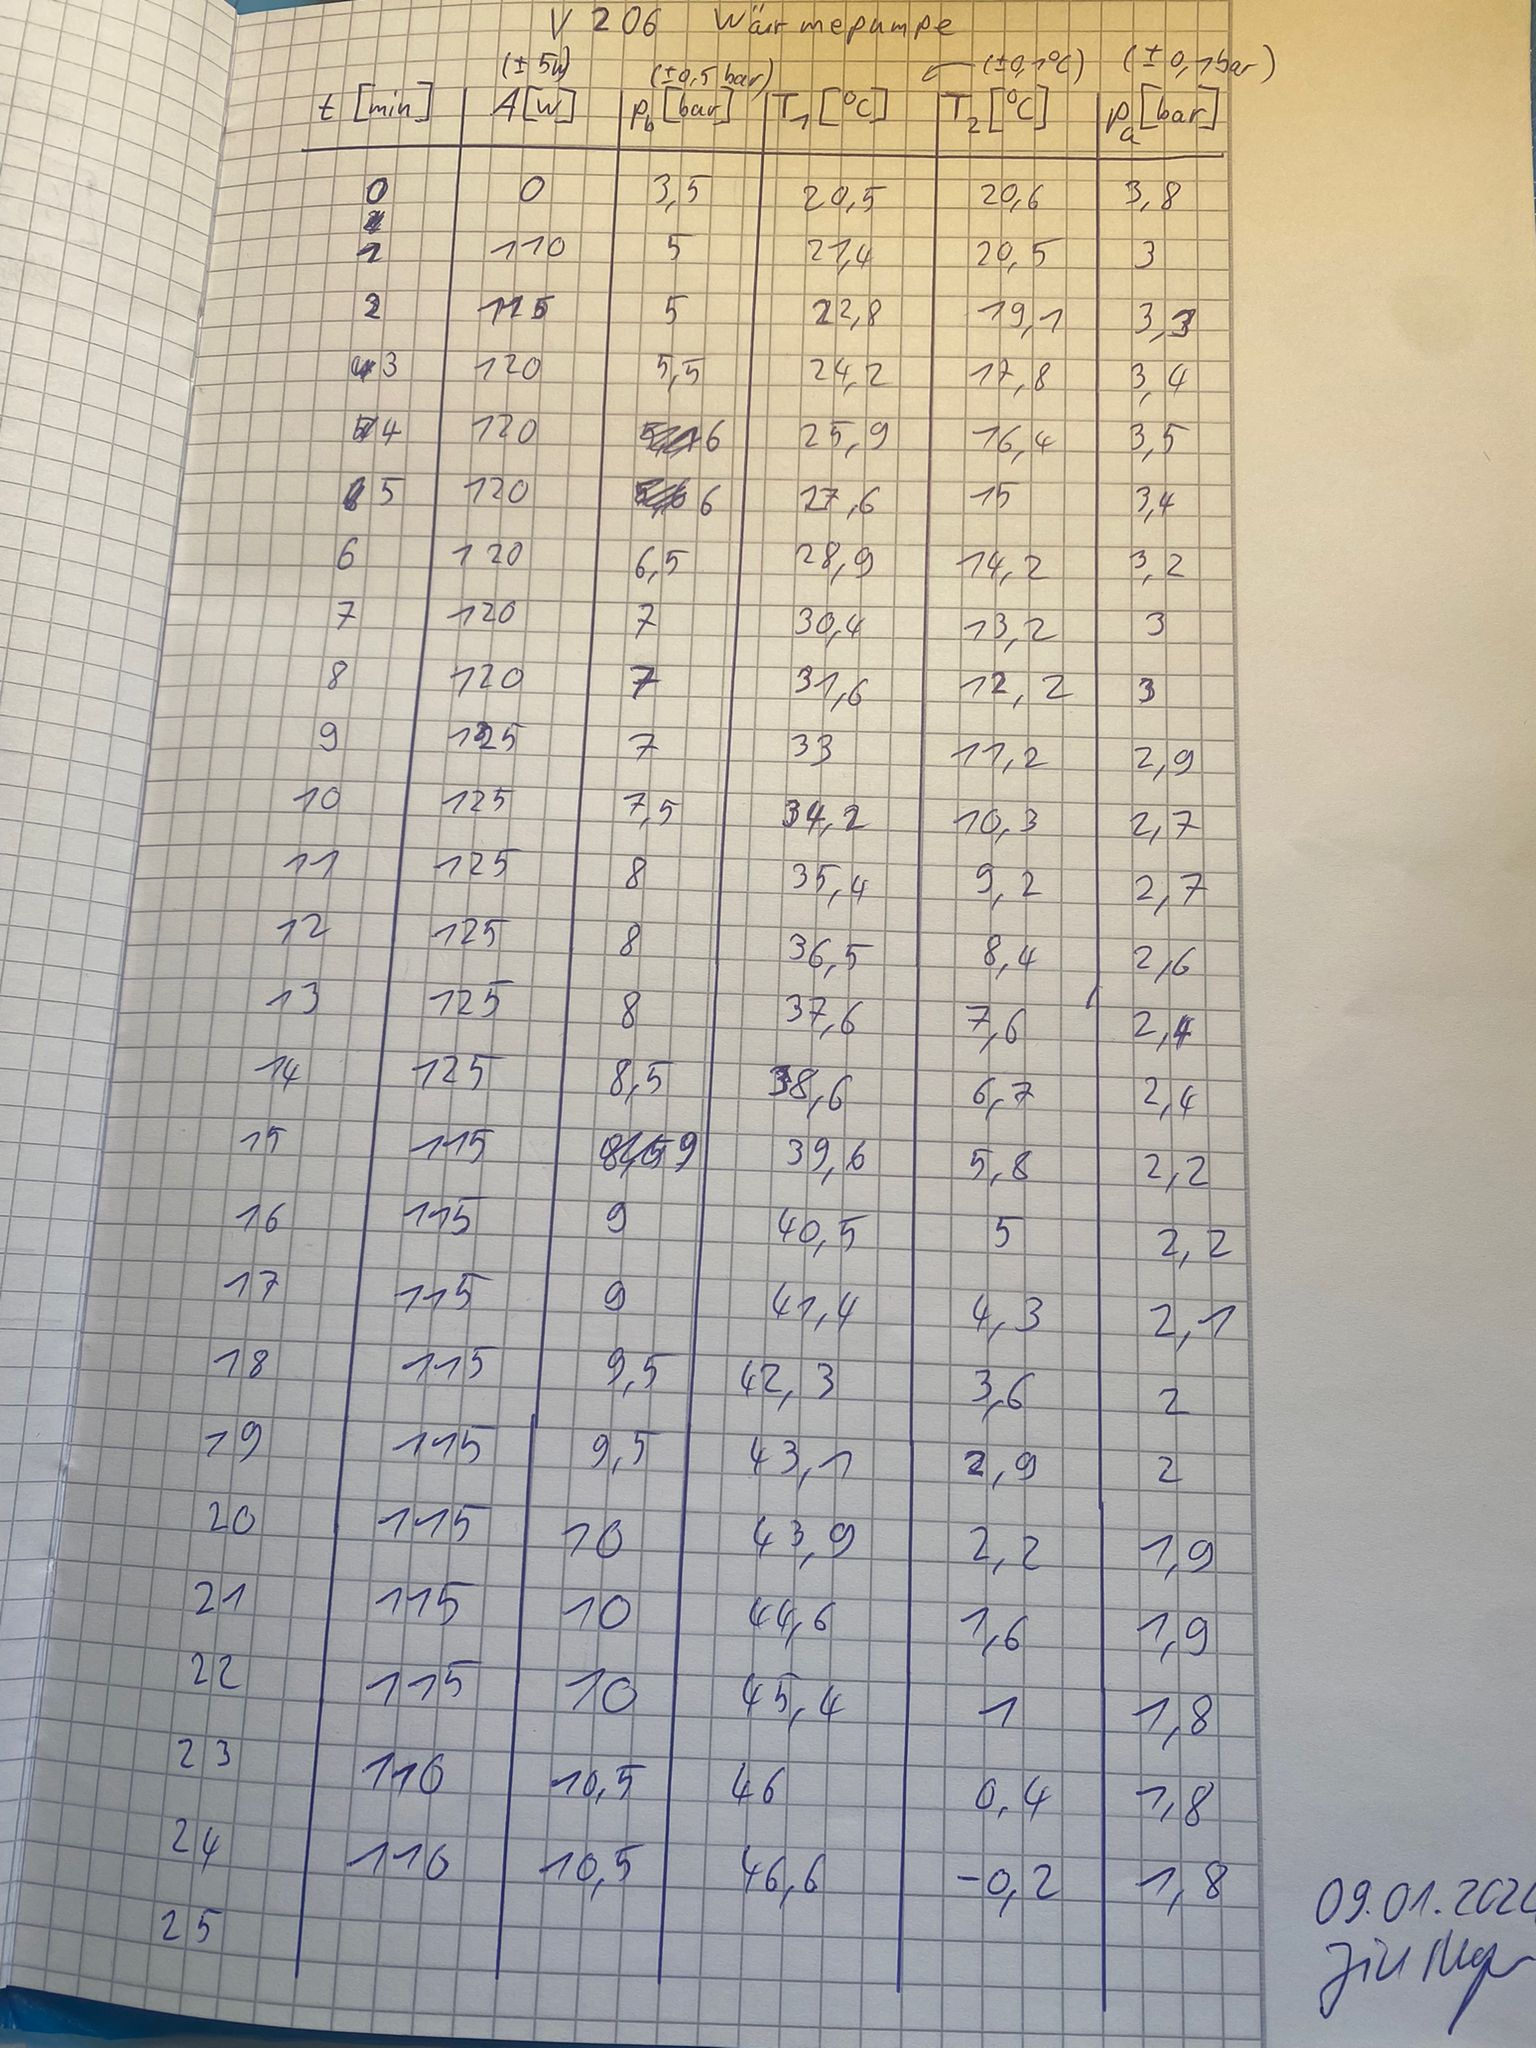 V 206 Wärmepumpe
(± 5W) (±0,5 bar) (±0,1°C) (±0,1bar)
t [min] A[W] p_b [bar] T_1 [°C] T_2 [°C] p_a [bar]
0 0 3,5 20,5 20,6 3,8
1 110 5 21,4 20,5 3
2 115 5 22,8 19,1 3,3
3 120 5,5 24,2 17,8 3,4
4 120 6 25,9 16,4 3,5
5 120 6 27,6 15 3,4
6 120 6,5 28,9 14,2 3,2
7 120 7 30,4 13,2 3
8 120 7 31,6 12,2 3
9 125 7 33 11,2 2,9
10 125 7,5 34,2 10,3 2,7
11 125 8 35,4 9,2 2,7
12 125 8 36,5 8,4 2,6
13 125 8 37,6 7,6 2,4
14 125 8,5 38,6 6,7 2,4
15 115 9 39,6 5,8 2,2
16 115 9 40,5 5 2,2
17 115 9 41,4 4,3 2,1
18 115 9,5 42,3 3,6 2
19 115 9,5 43,1 2,9 2
20 115 10 43,9 2,2 1,9
21 115 10 44,6 1,6 1,9
22 115 10 45,4 1 1,8
23 110 10,5 46 0,4 1,8
24 110 10,5 46,6 -0,2 1,8
25
09.01.202